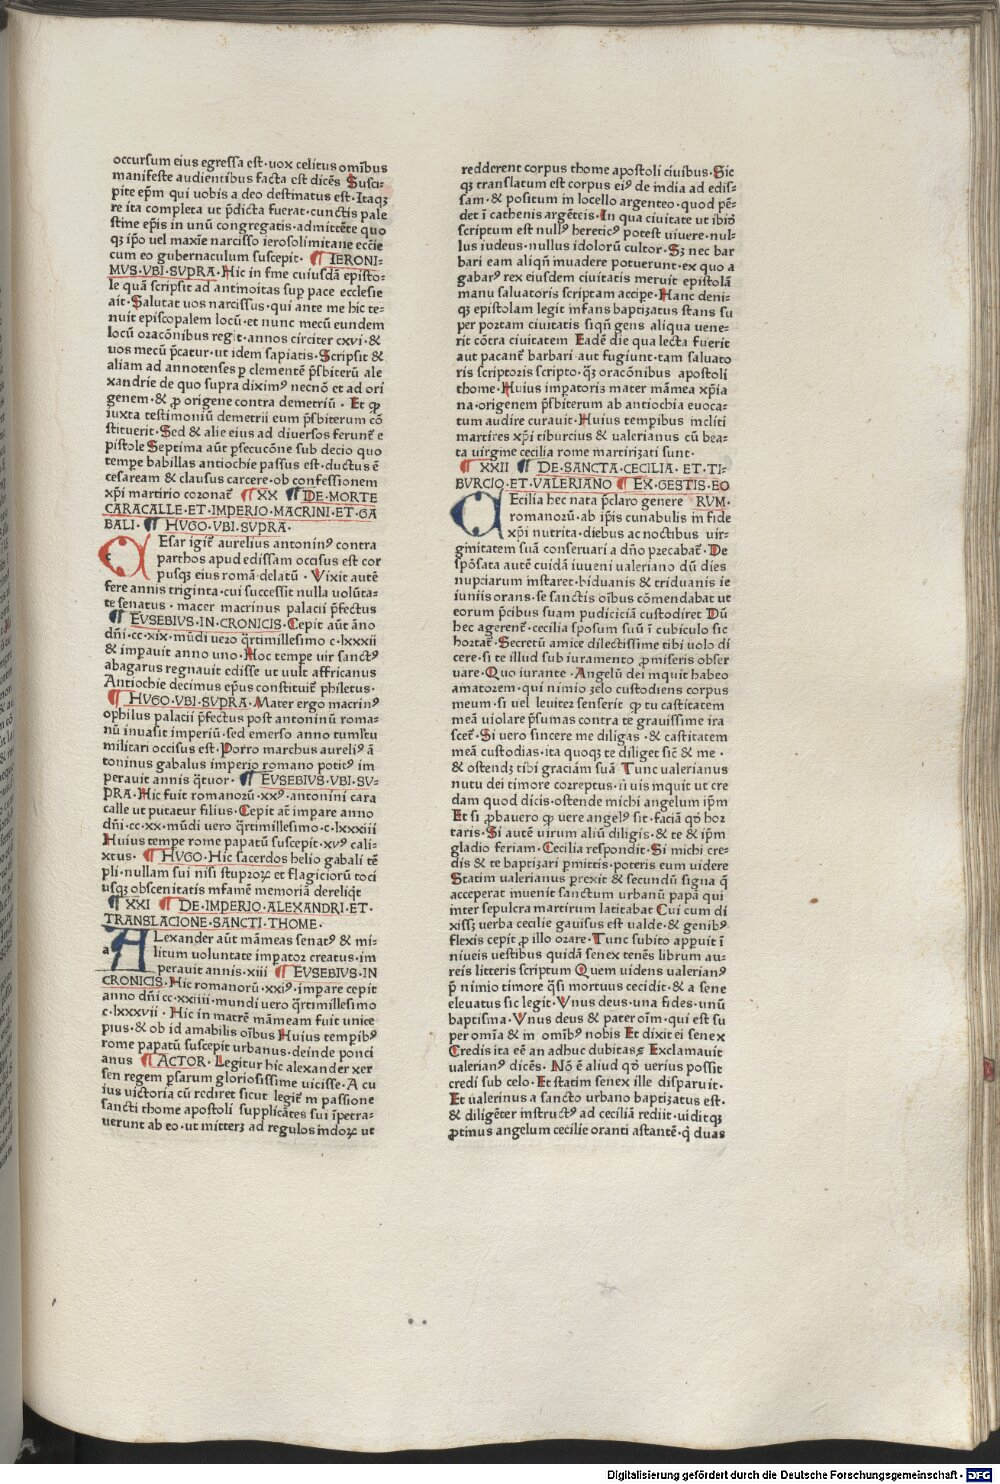 occursum eius egressa est·uox celitus om̄ibus
manifeste audientibus facta est dicēs Susci⸗
pite ep̄m qui uobis a deo destinatus est·Itaqꝫ
re ita completa ut p̄dicta fuerat·cunctis pale
stine ep̄is in unū congregatis·admittēte quo
qꝫ ip̄o uel maxīe narcisso ierosolimitane eccīe
cum eo gubernaculum suscepit· ¶ IERONI⸗
MVS·VBI·SVPRA·Hic in fine cuiusdā episto⸗
le quā scripsit ad antinoitas suꝑ pace ecclesie
ait·Salutat uos narcissus·qui ante me hic te⸗
nuit episcopalem locū·et nunc mecū eundem
locū oracōnibus regit·annos circiter cxvi·&
uos mecū p̄catur·ut idem sapiatis·Scripsit &
aliam ad annotenses ꝑ clementē p̄sbiterū ale
xandrie de quo supra diximꝰ necnō et ad ori
genem·& ꝓ origene contra demetriū · Et ꝙ
iuxta testimoniū demetrii eum p̄sbiterum cō
stituerit·Sed & alie eius ad diuersos ferunt̄ e
pistole Septima aūt ꝑsecucōne sub decio quo
tempe babillas antiochie passus est·ductus ē
cesaream & clausus carcere·ob confessionem
xp̄i martirio coronat̄ ¶ XX ¶ DE·MORTE
CARACALLE·ET·IMPERIO·MACRINI·ET·GA
BALI·¶ HVGO·VBI·SVPRA·
CEsar igit̄ aurelius antoninꝰ contra
parthos apud edissam occisus est cor
pusqꝫ eius romā·delatū · Vixit autē
fere annis triginta·cui successit nulla volūta⸗
te senatus · macer macrinus palacii p̄fectus
¶ EVSEBIVS·IN·CRONICIS·Cepit aūt āno
dn̄i·cc·xix·mūdi uero q̄rtimillesimo c·lxxxii
& imꝑauit anno uno·Hoc tempe vir sanctꝰ
abagarus regnauit edisse ut uult affricanus
Antiochie decimus ep̄us constituit̄ philetus·
¶ HVGO·VBI·SVPRA·Mater ergo macrinꝰ
ophilus palacii p̄fectus post antoninū roma⸗
nū inuasit imperiū·sed emerso anno tumltu
militari occisus est·Porro marchus aureliꝰ ā
toninus gabalus imperio romano potitꝰ im
perauit annis q̄tuor·¶ EVSEBIVS·VBI·SV⸗
PRA·Hic fuit romanorū·xxꝰ·antonini cara
calle ut putatur filius·Cepit at̄ impare anno
dn̄i·cc·xx·mūdi uero q̄rtimillesimo·c·lxxxiii
Huius tempe rome papatū suscepit·xvꝰ cali⸗
xtus· ¶ HVGO·Hic sacerdos helio gabali tē
pli·nullam sui nisi stuproꝝ et flagiciorū toci
usqꝫ obscenitatis infamē memoriā dereliq̄t
¶ XXI ¶ DE·IMPERIO·ALEXANDRI·ET·
TRANSLACIONE·SANCTI·THOME·
a ALexander aūt māmeas senatꝰ & mi⸗
litum voluntate impator creatus·im
perauit annis·xiii ¶ EVSEBIVS·IN
CRONICIS·Hic romanorū·xxiꝰ·impare cepit
anno dn̄i cc·xxiiii·mundi uero q̄rtimillesimo
c·lxxxvii · Hic in matrē māmeam fuit unice
pius·& ob id amabilis oībus Huius tempibꝰ
rome papatū suscepit urbanus·deinde ponci
anus ¶ ACTOR·Legitur hic alexander xer
sen regem ꝑsarum gloriosissime uicisse·A cu
ius uictoria cū rediret sicut legit̄ in passione
sancti thome apostoli supplicātes sui īpetra⸗
uerunt ab eo·ut mitterꝫ ad regulos indoꝝ ut
redderent corpus thome apostoli ciuibus·Sic
qꝫ translatum est corpus eiꝰ de india ad edis⸗
sam·& positum in locello argenteo·quod pē⸗
det ī cathenis argēteis·In qua ciuitate ut ibid̄
scriptum est nullꝰ hereticꝰ potest viuere·nul⸗
lus iudeus·nullus idolorū cultor·Sꝫ nec bar
bari eam aliqn̄ inuadere potuerunt·ex quo a
gabarꝰ rex eiusdem ciuitatis meruit epistolā
manu saluatoris scriptam accipe·Hanc deni⸗
qꝫ epistolam legit infans baptizatus stans su
per portam ciuitatis siqn̄ gens aliqua uene⸗
rit cōtra ciuitatem Eadē die qua lecta fuerit
aut pacant̄ barbari aut fugiunt·tam saluato
ris scriptoris scripto·qꝫ oracōnibus apostoli
thome·Huius impatoris mater māmea xp̄ia
na·origenem p̄sbiterum ab antiochia euoca⸗
tum audire curauit·Huius tempibus incliti
martires xp̄i tiburcius & ualerianus cū bea⸗
ta virgine cecilia rome martirizati sunt·
¶ XXII ¶ DE·SANCTA·CECILIA·ET·TI⸗
BVRCIO·ET·VALERIANO ¶ EX·GESTIS·EO
CEcilia hec nata p̄claro genere RVM·
romanorū·ab ip̄is cunabulis in fide
xp̄i nutrita·diebus ac noctibus vir⸗
ginitatem suā conseruari a dn̄o precabat̄·De
spōsata autē cuidā iuueni ualeriano dū dies
nupciarum instaret·biduanis & triduanis ie
iuniis orans·se sanctis oībus cōmendabat ut
eorum p̄cibus suam pudiciciā custodiret Dū
hec agerent̄·cecilia sposum suū ī cubiculo sic
hortat̄·Secretū amice dilectissime tibi uolo di
cere·si te illud sub iuramento ꝓmiseris obser
uare·Quo iurante · Angelū dei inquit habeo
amatorem·qui nimio zelo custodiens corpus
meum·si uel leuiter senserit ꝙ tu castitatem
meā uiolare p̄sumas contra te grauissime ira
scet̄·Si uero sincere me diligas·& castitatem
meā custodias·ita quoqꝫ te diliget sic̄ & me·
& ostendꝫ tibi graciam suā Tunc ualerianus
nutu dei timore correptus·ii uis inquit ut cre
dam quod dicis·ostende michi angelum ip̄m
Et si ꝓbauero ꝙ uere angelꝰ sit·faciā qd̄ hor
taris·Si autē virum aliū diligis·& te & ip̄m
gladio feriam·Cecilia respondit·Si michi cre⸗
dis & te baptizari ꝑmittis·poteris eum uidere
Statim ualerianus ꝑrexit & secundū signa q̄
acceperat inuenit sanctum urbanū papā qui
inter sepulcra martirum latitabat Cui cum di
xissꝫ uerba cecilie gauisus est ualde·& genibꝰ
flexis cepit ꝓ illo orare·Tunc subito appuit ī
niueis uestibus quidā senex tenēs librum au⸗
reis litteris scriptum Quem uidens ualerianꝰ
p̄ nimio timore q̄si mortuus cecidit·& a sene
eleuatus sic legit·Vnus deus·una fides·unū
baptisma·Vnus deus & pater oīm·qui est su
per omīa & in omībꝰ nobis Et dixit ei senex
Credis ita eē an adhuc dubitas⸗ Exclamauit
ualerianꝰ dicēs·Nō ē aliud qd̄ uerius possit
credi sub celo·Et statim senex ille disparuit·
Et ualerinus a sancto urbano baptizatus est·
& diligēter instructꝰ ad ceciliā rediit·uiditqꝫ
ꝓtinus angelum cecilie oranti astantē·q̇ duas
Digitalisierung gefördert durch die Deutsche Forschungsgemeinschaft · DFG